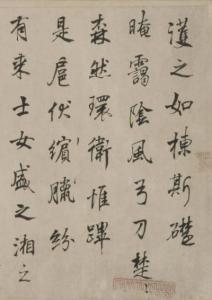 護之如棟斯礎
晻靄陰風弓刀楚
森然環衛惟蹕
是扈伏繽臘紛
有來士女盛之湘之